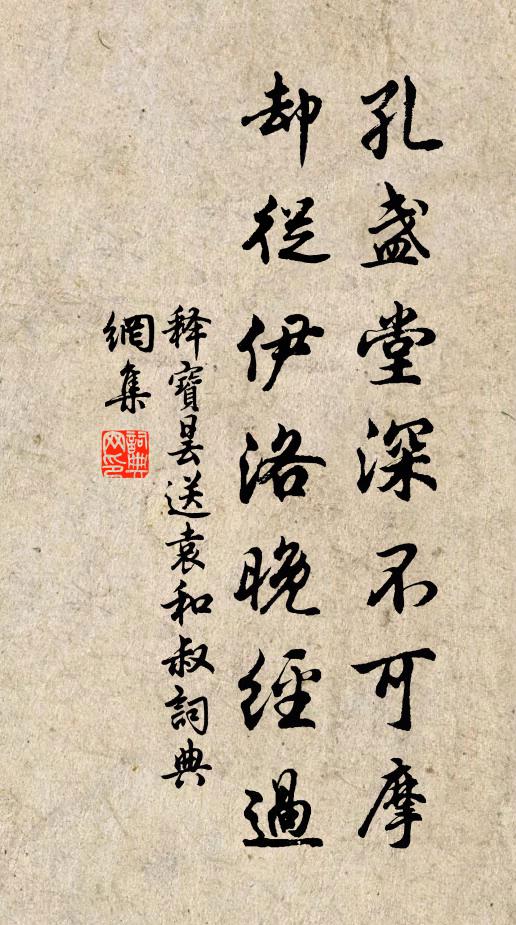 孔盞堂深不可摩
却從伊洛晚經過
释寶曇送袁和叔詞典
網集
詞典
网印